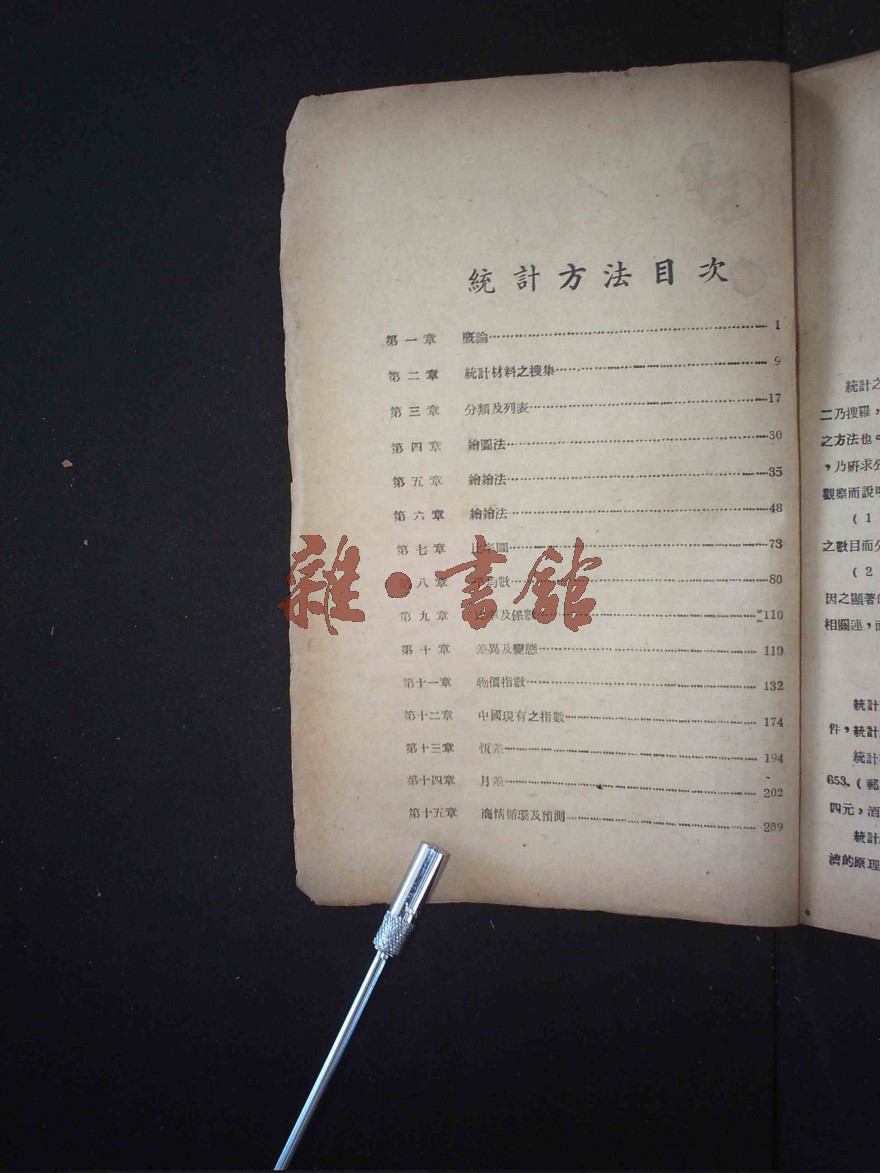 統計方法目次
第一章 概論 1
第二章 統計材料之搜集 9
第三章 分類及列表 17
第四章 繪圖法 30
第五章 繪繪法 35
第六章 繪繪法 48
第七章 比率圖 73
第八章 平均數 80
第九章 比率及係數 110
第十章 差異及變態 119
第十一章 物價指數 132
第十二章 中國現有之指數 174
第十三章 恆差 194
第十四章 月差 202
第十五章 商情循環及預測 209
雜·書館
統計之
二乃搜羅，
之方法也。
，乃研求公
觀察而說明
(1
之數目而分
(2
因之顯著的
相關連，而
統計
件，統計
統計
653.(郵
四元，酒
統計
濟的原理